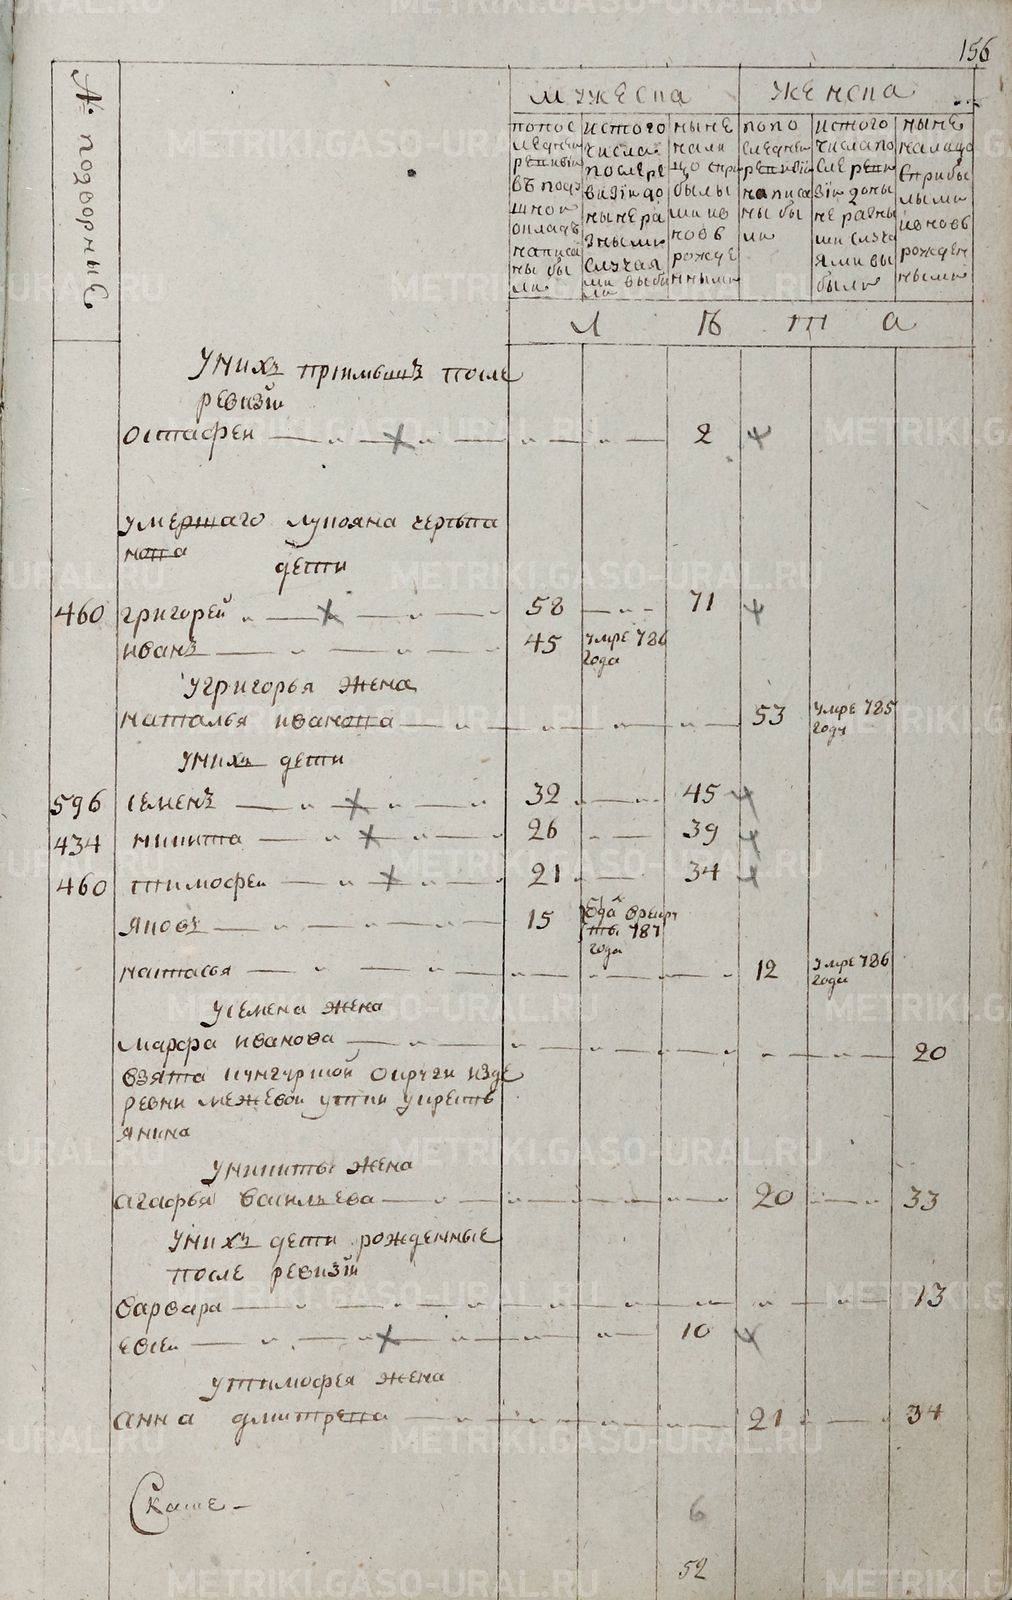 156
№ подворные
мужеска
женска
попос
ледней
ревизии
въ поду
шной
окладъ
написа
ны бы
ли
истого
числа
послере
визiи до
ныне ра
зными
случая
ми выбы
ли
ныне
нали
цо спри
былы
ми ив
новь
рожде
нными
попо
следней
ревизии
написа
ны бы
ли
истого
числапо
слереви
зiи доны
не разны
ми случа
ями вы
были
ныне
налицо
сприбы
лыми
ивновь
рожден
ными
л ѣ т а
униxъ прiимышъ после
ревизiи
остафеи 2
умершаго лукояна
дети
460 григорей 58 71
иванъ 45 умре 786
года
Угригорья жена
наталья иванова 53 умре 785
году
униxъ дети
596 семенъ 32 45
434 никита 26 39
460 тимофеи 21 34
яковъ 15 787
года
настасья 12 умре 786
года
Усемена жена
марфа иванова 20
взята кунгурской округи изде
ревни межевой утки укрестъ
янина
Уникиты жена
агафья васильева 20 33
униxъ дети рожденные
после ревизiи
варвара 13
евсеи 10
утимофея жена
анна дмитрева 21 34
6
52
METRIKI.GASO-URAL.RU